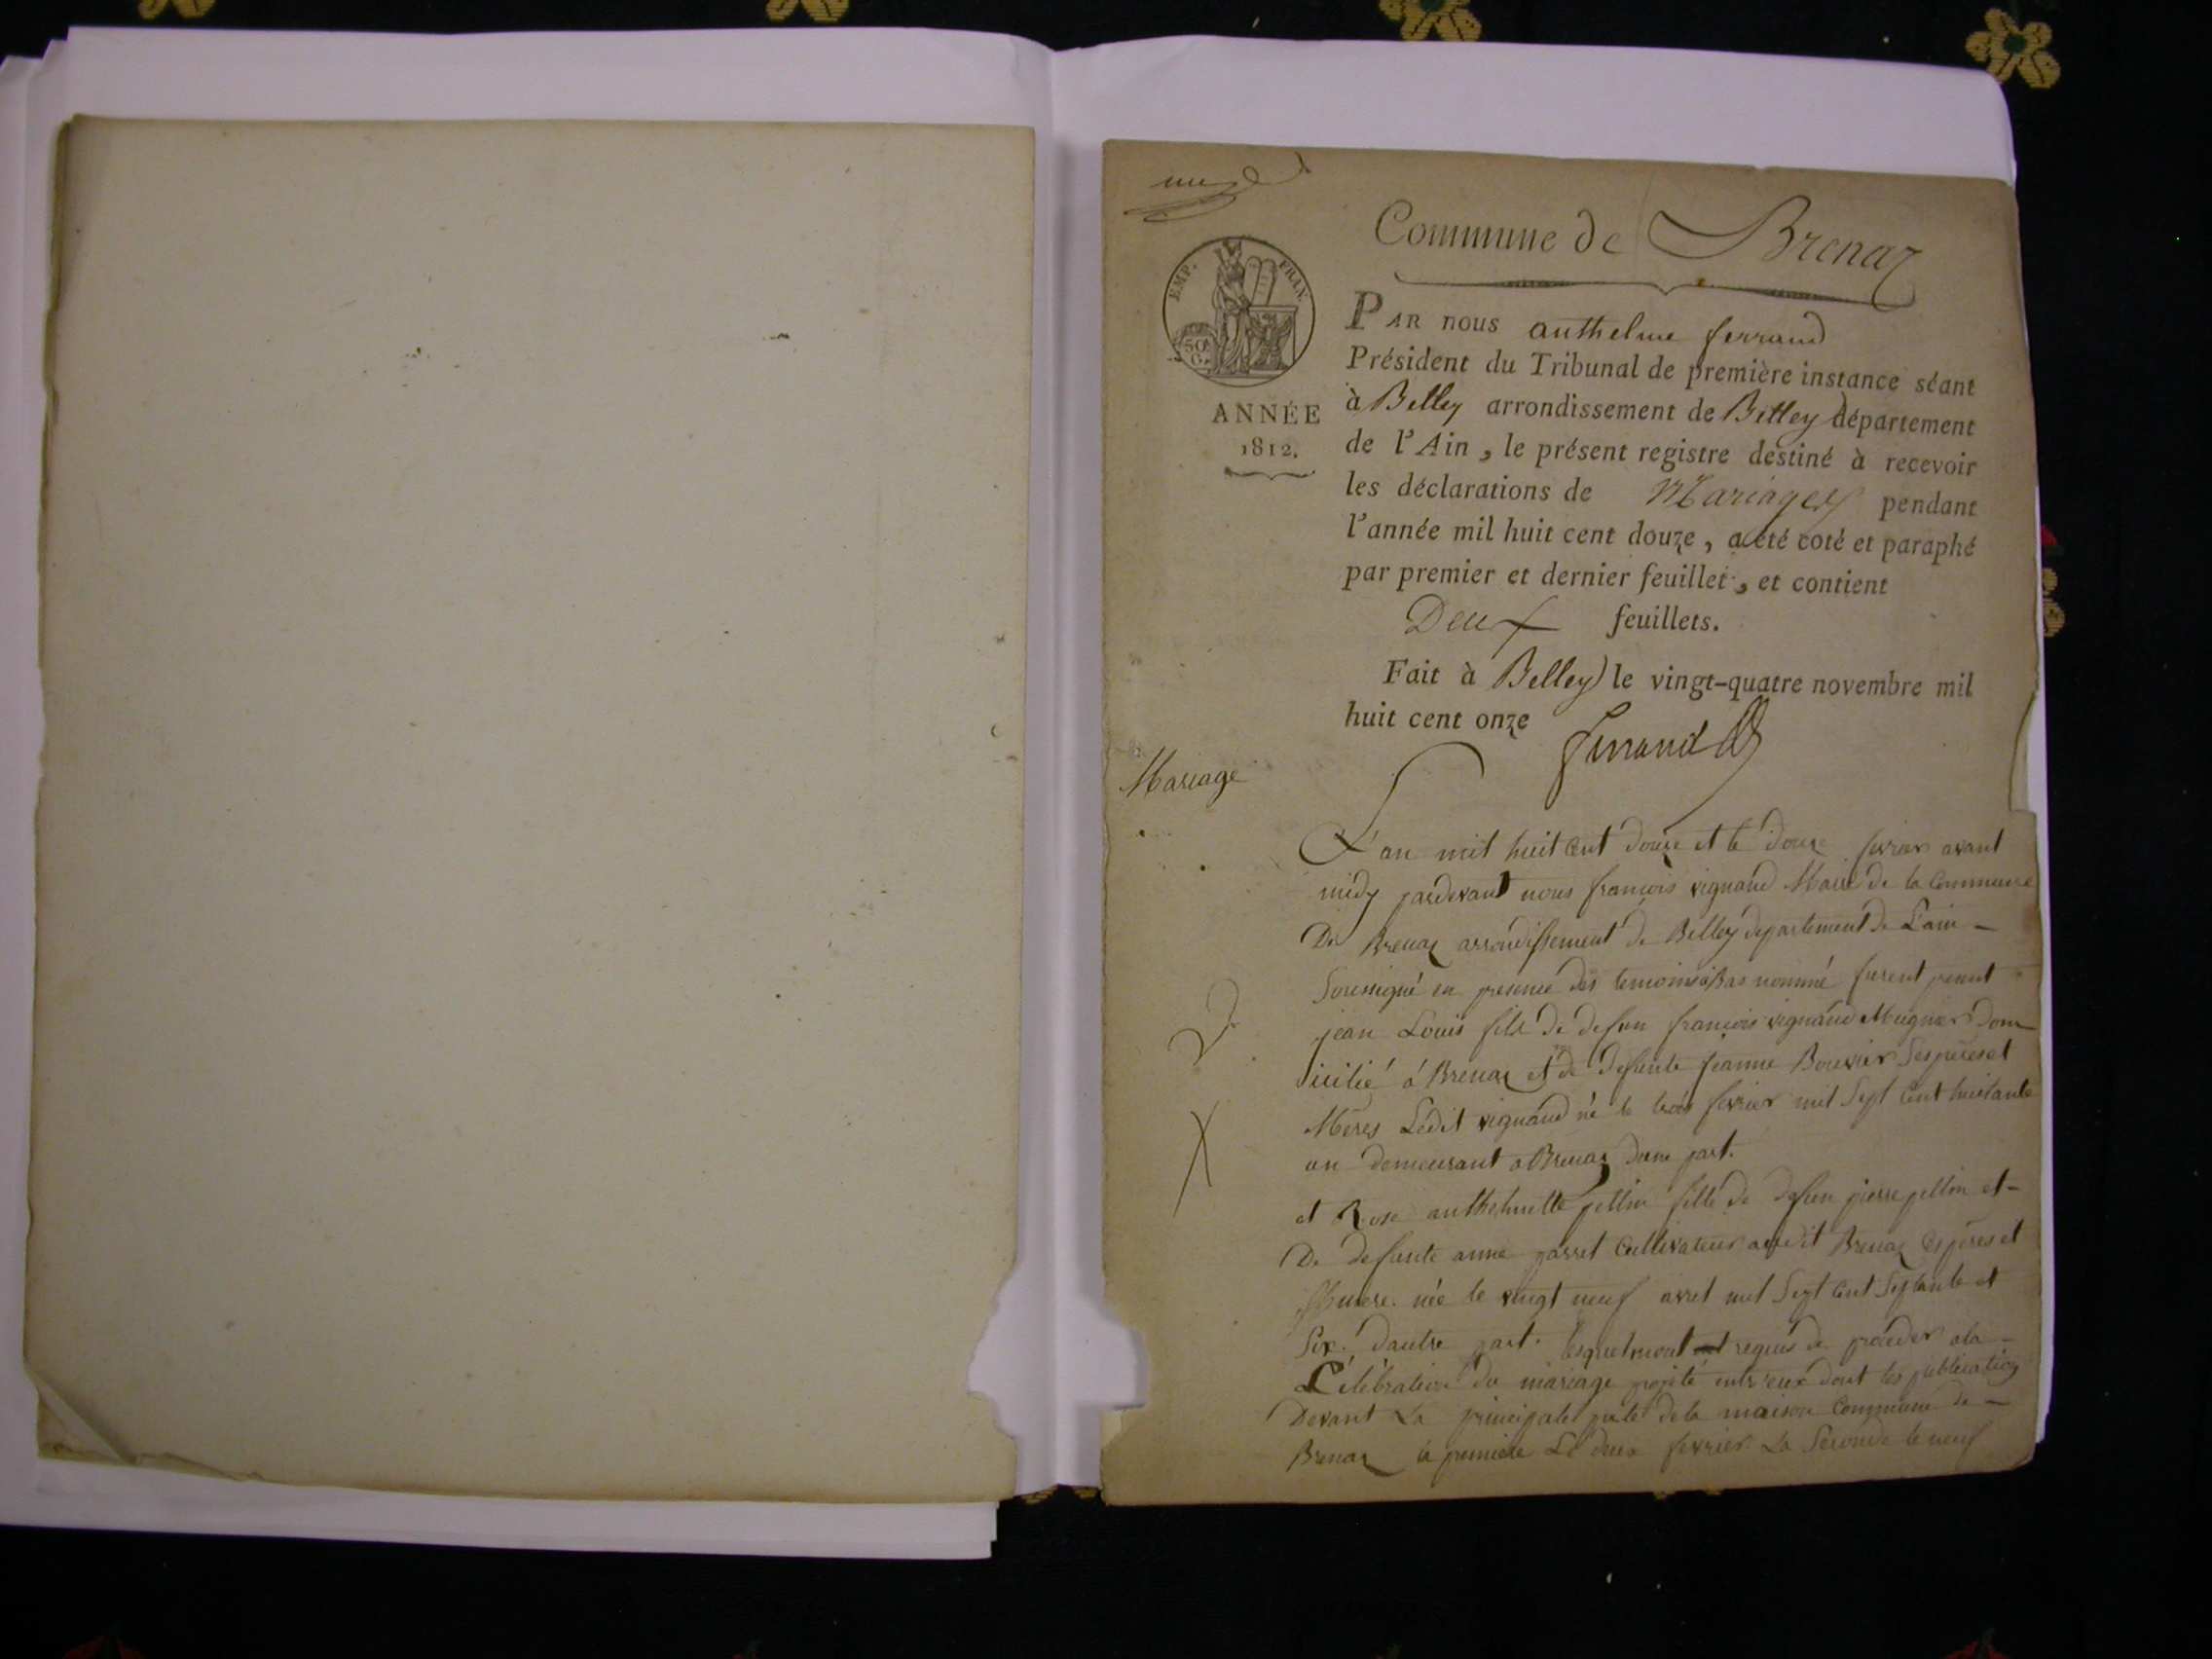 une
Commune de Brenaz
EMP. FRAN.
50
C.
ANNÉE
1812.
PAR nous anthelme ferrand
Président du Tribunal de première instance séant
à Belley arrondissement de Belley département
de l'Ain, le présent registre destiné à recevoir
les déclarations de Mariages pendant
l'année mil huit cent douze, a été coté et paraphé
par premier et dernier feuillet, et contient
Deux feuillets.
Fait à Belley le vingt-quatre novembre mil
huit cent onze
Ferrand
Mariage
L'an mil huit Cent douze et le douze fevrier avant
midy pardevant nous francois vignand Maire de la Commune
De Brenaz arrondissement de Belley departement de L'ain -
Soussigné en presence des temoins à Bas nommé furent
jean Louis fils de defun francois vignand Mugnier dom
icilié à Brenaz et de defunte jeanne Bouvier Ses peres et
Meres Ledit vignand né le trois fevrier mil Sept Cent huitante
un demeurant a Brenaz dune part.
et Rose anthelmette pillin fille de defun pierre pillin et -
De defunte anne Cultivateur audit Brenaz Ses peres et
mere. née le vingt neuf avril mil Sept Cent Septante et
Six. dautre part. Lesquels mont requis de proceder a la -
Célébration du mariage projeté entr'eux dont les publication
Devant La principale porte de la maison Commune de -
Brenaz la premiere Le deux fevrier La Seconde le neuf